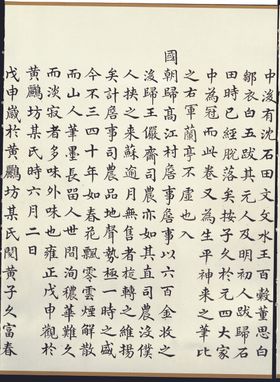 中後有沈石田文文水王百穀董思白
鄒衣白五跋其元人及明初人跋歸石
田時已經脫落矣按子久於元四大家
中為冠而此卷又為生平神來之筆比
之右軍蘭亭不虛也入
國朝歸高江村居事居事以六百金收之
後歸王儼齋司農亦如其直司農沒僕
人挾之來蘇逾月無售者旋轉之維揚
矣計居事司農品地聲勢極一時之盛
今不三四十年如春花飄零雲煙解散
而山人筆墨長留人世間洵穠華難久
而淡寂者多味外味也雍正戊申觀於
黃鸝坊某氏時六月二日
戊申歲於黃鸝坊某氏閱黃子久富春